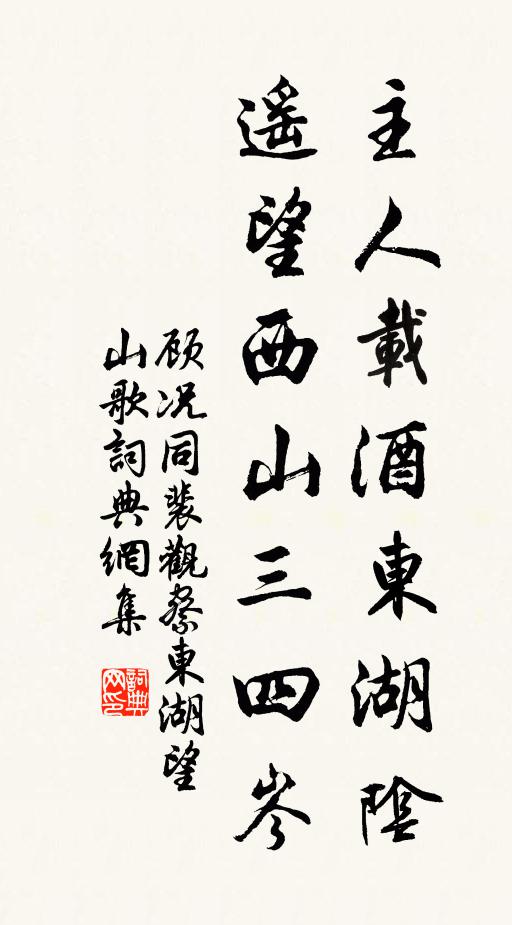 主人載酒東湖陰
遥望西山三四岑
顾况同裴觀察東湖望
山歌詞典網集
詞典网印